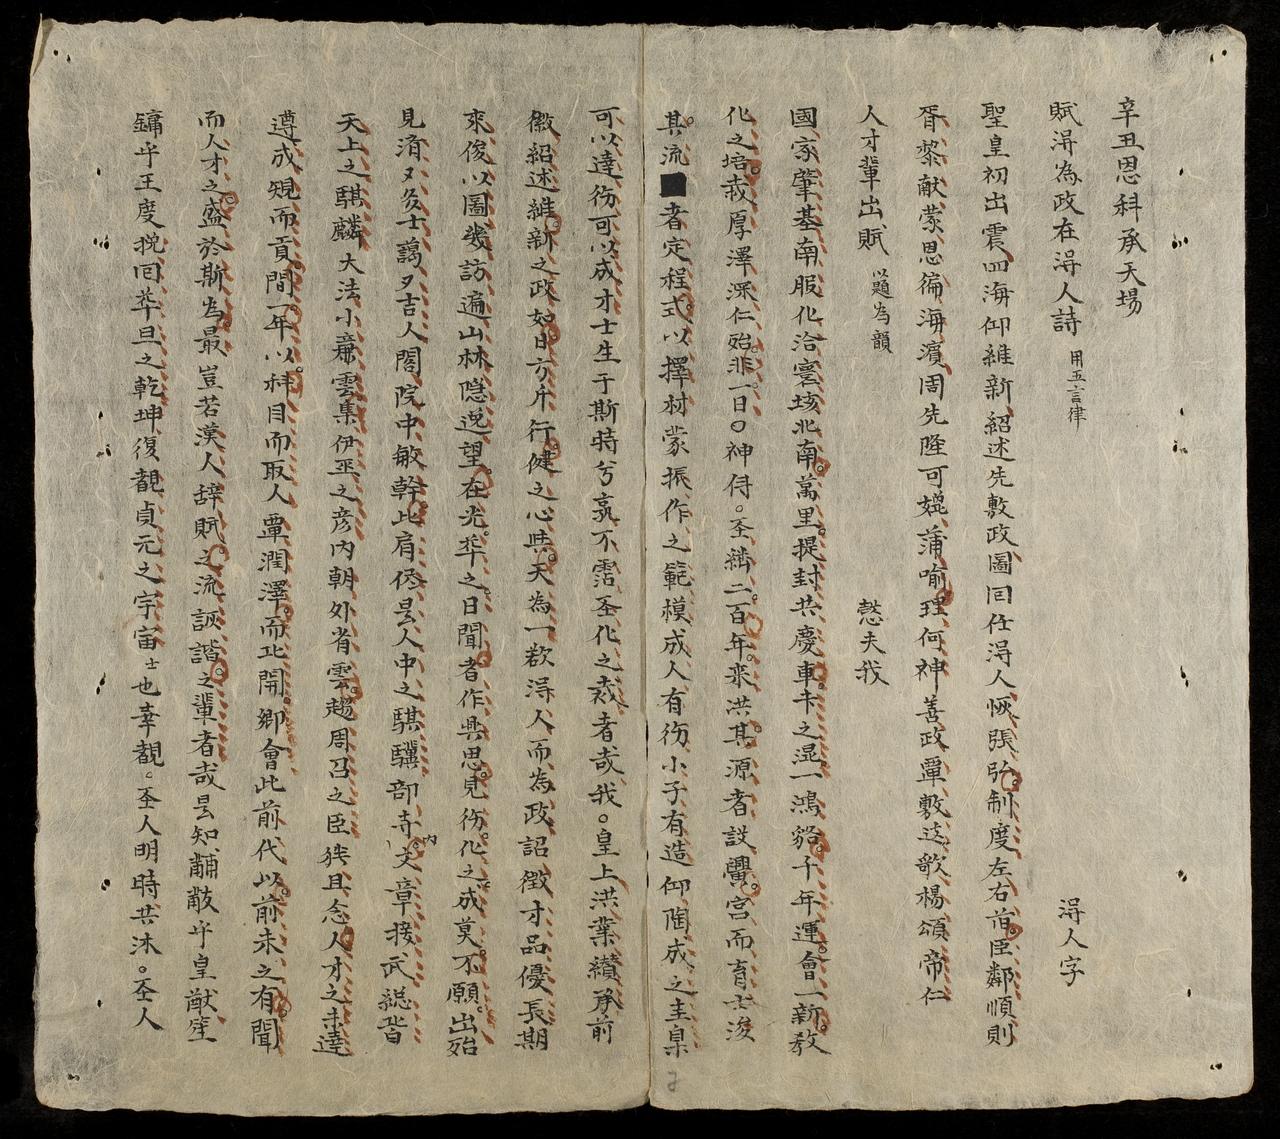 辛丑恩科承天場
賦淂為政在淂人詩 用五言律 淂人字
聖皇初出震四海仰維新紹述先敷政圖囘任淂人恢張弘制度左右莤臣鄰順則
胥黎献蒙恩徧海濱周先陞可媲蒲喻理何神善政覃敷迏歌楊頌帝仁
人才輩出賦 以題為韻 慦夫我
國家肇基南服化洽寰垓北南萬里提封共慶車书之混一鴻貂千年運會一新教
化之培栽厚澤深仁殆非一日○神侍。圣繼二百年来洪其源者設黌宮而育士浚
其流■者定程式以擇材蒙振作之範模成人有㣲小子有造仰陶成之圭臬
可以達㣲可以成才士生于斯時兮孰不霑圣化之裁者哉我。皇上洪業纘承前
徽紹述維新之政如日方斤行健之心與天為一欲淂人而為政詔徵才品優長期
來俊以圖幾訪遍山林隱逸望在光华之日聞者作興思見㣲化之成莫不願出殆
見濟又灸士藹又吉人閣院中敏幹比肩俢是人中之騏驥部寺内文章接武総皆
天上之騏麟大法小亷雲集伊巫之彦内朝外省雲趨周召之臣犹且念人才之未達
遵成規而貢間一年以科目而取人覃潤澤而丕開鄉會此前代以前未之有聞
而人才之盛於斯為最豈若漢人辞賦之流詼諧之輩者哉是知黼黻乎皇猷笙
鏞乎王度挽囘华旦之乾坤復覩貞元之宇宙士也幸覩。圣人明時共沐。圣人